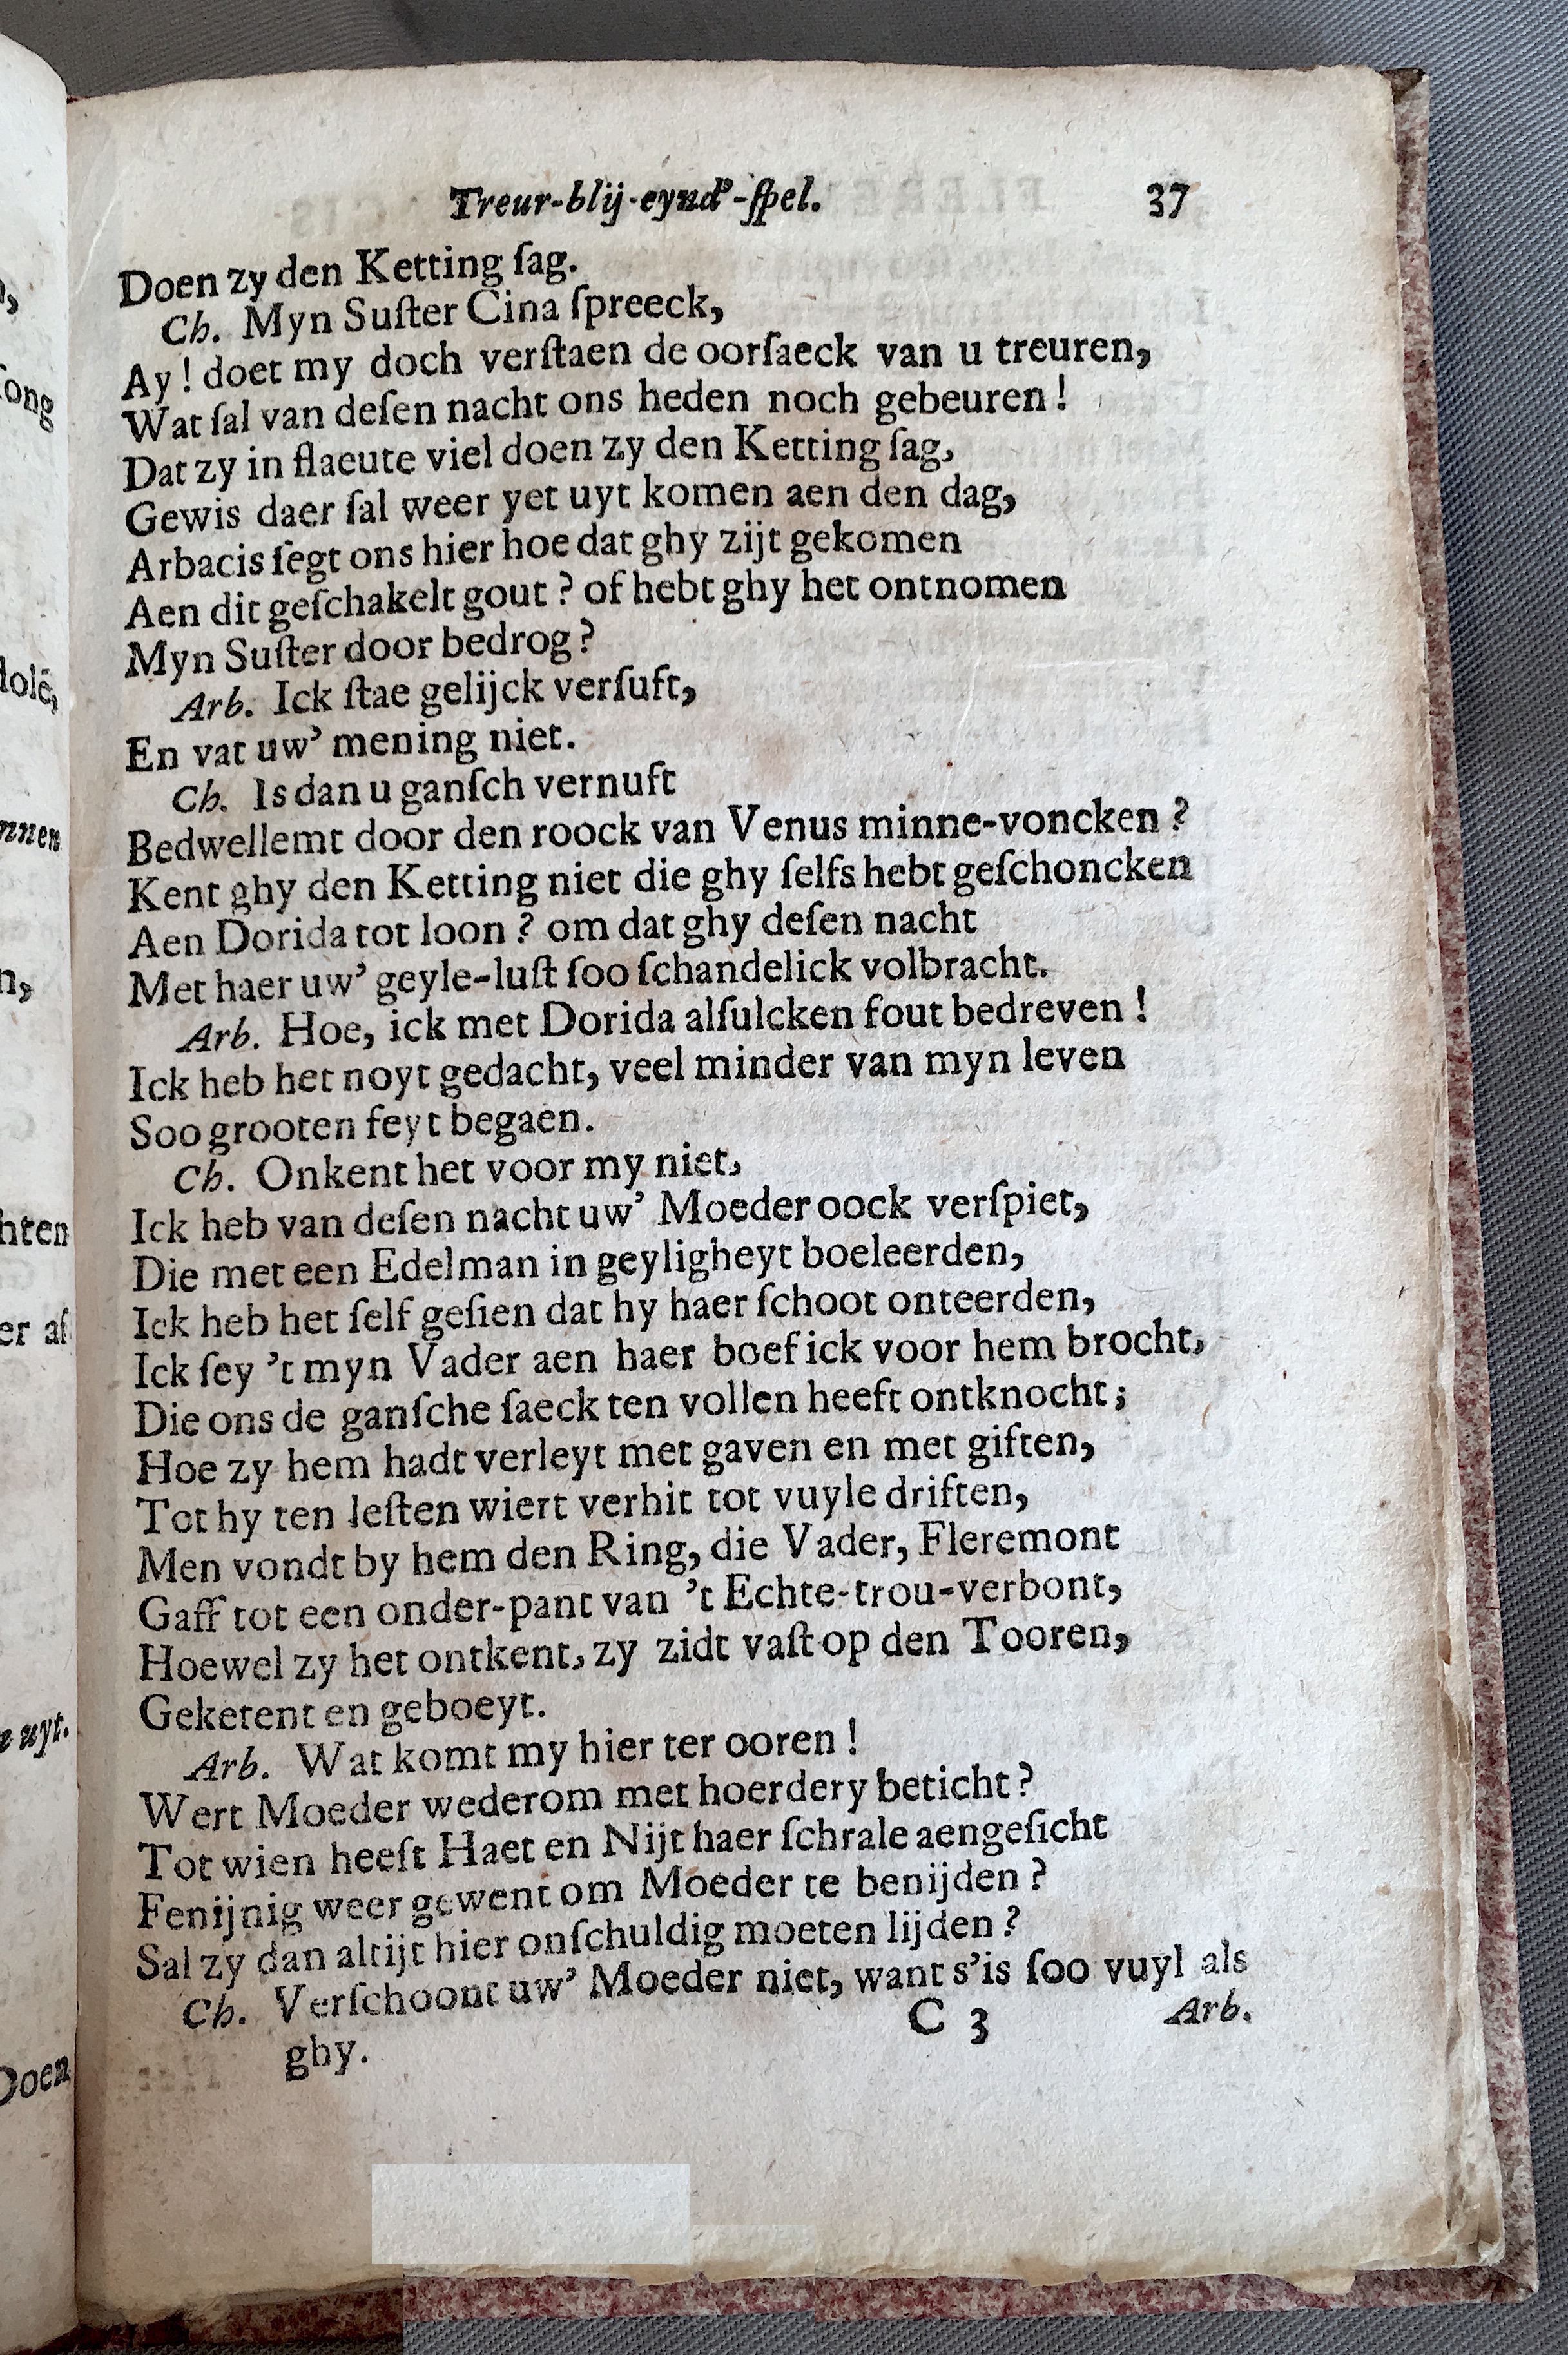 Treur-blij-eynd'-ſpel. 37
Doen zy den Ketting ſag.
Ch. Myn Suſter Cina ſpreeck,
Ay! doet my doch verſtaen de oorſaeck van u treuren,
Wat ſal van deſen nacht ons heden noch gebeuren!
Dat zy in flaeute viel doen zy den Ketting ſag,
Gewis daer ſal weer yet uyt komen aen den dag,
Arbacis ſegt ons hier hoe dat ghy zijt gekomen
Aen dit geſchakelt gout? of hebt ghy het ontnomen
Myn Suſter door bedrog?
Arb. Ick ſtae gelijck verſuft,
En vat uw' mening niet.
Ch. Is dan u ganſch vernuft
Bedwellemt door den roock van Venus minne-voncken?
Kent ghy den Ketting niet die ghy ſelfs hebt geſchoncken
Aen Dorida tot loon? om dat ghy deſen nacht
Met haer uw' geyle-luſt ſoo ſchandelick volbracht.
Arb. Hoe, ick met Dorida alſulcken fout bedreven!
Ick heb het noyt gedacht, veel minder van myn leven
Soo grooten feyt begaen.
Ch. Onkent het voor my niet,
Ick heb van deſen nacht uw' Moeder oock verſpiet,
Die met een Edelman in geyligheyt boeleerden,
Ick heb het ſelf geſien dat hy haer ſchoot onteerden,
Ick ſey 't myn Vader aen haer boef ick voor hem brocht,
Die ons de ganſche ſaeck ten vollen heeft ontknocht;
Hoe zy hem hadt verleyt met gaven en met giften,
Tot hy ten leſten wiert verhit tot vuyle driften,
Men vondt by hem den Ring, die Vader, Fleremont
Gaff tot een onder-pant van 't Echte-trou-verbont,
Hoewel zy het ontkent, zy zidt vaſt op den Tooren,
Geketent en geboeyt.
Arb. Wat komt my hier ter ooren!
Wert Moeder wederom met hoerdery beticht?
Tot wien heeft Haet en Nijt haer ſchrale aengeſicht
Fenijnig weer gewent om Moeder te benijden?
Sal zy dan altijt hier onſchuldig moeten lijden?
Ch. Verſchoont uw' Moeder niet, want s'is ſoo vuyl als
ghy.
C 3 Arb.